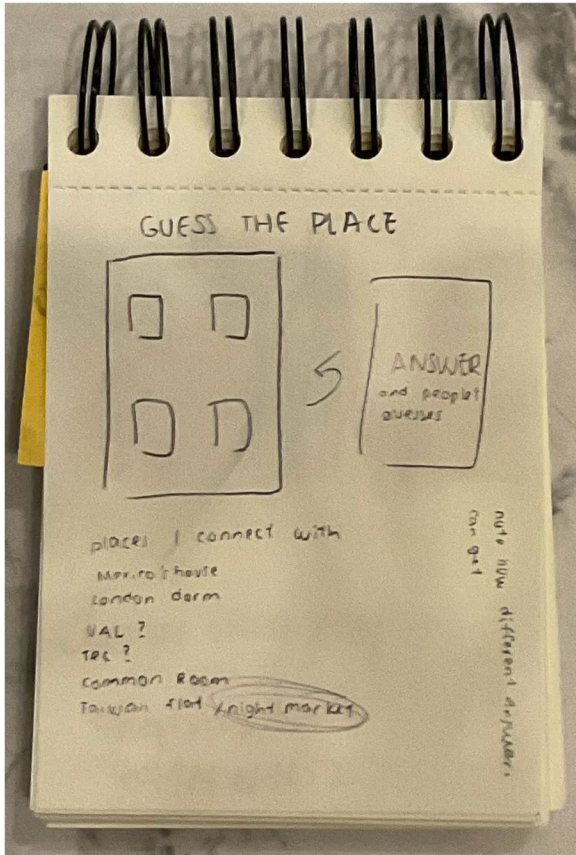 GUESS THE PLACE
ANSWER
and people's
guesses
places I connect with
Mexico's house
London dorm
UAL ?
TEC ?
Common Room
Taiwan flat / night market
note how different answers
can get